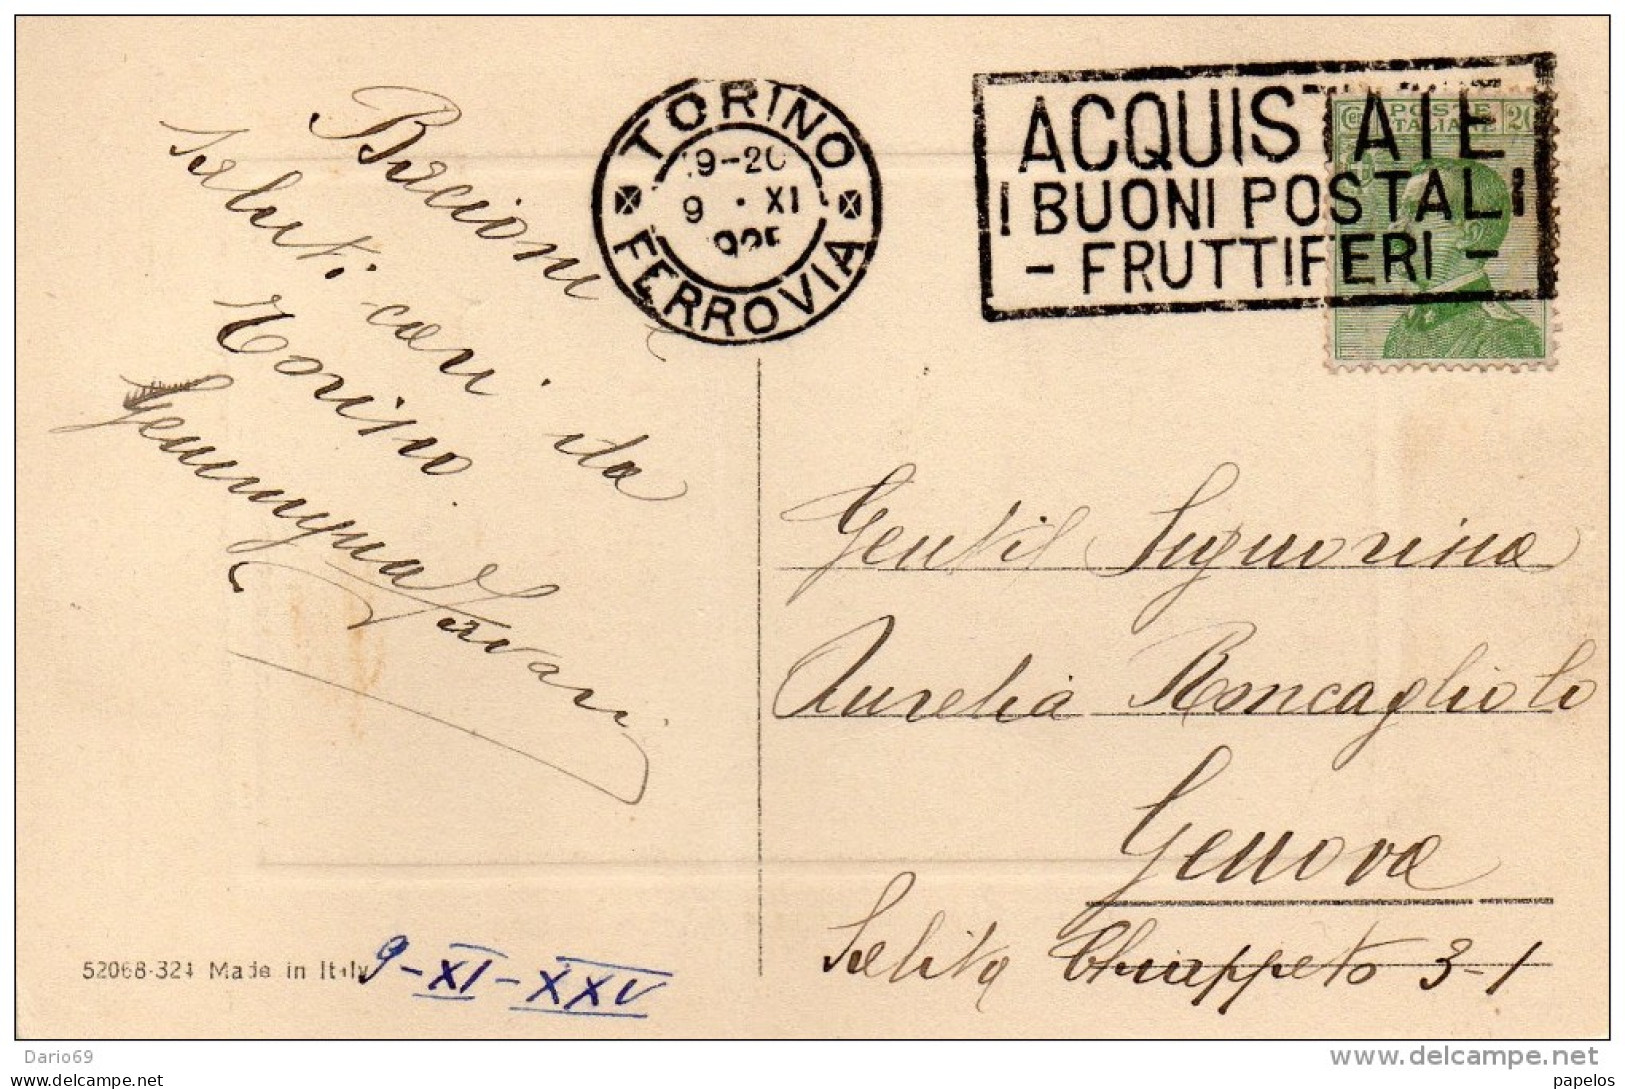 Bacioni e
saluti cari da
Torino
TORINO
19-20
9 · XI
1925
FERROVIA
ACQUISTATE
I BUONI POSTALI
- FRUTTIFERI -
POSTE
ITALIANE
Cen 20
Gentil Signorina
Aurelia Roncagliolo
Genova
Salita Chiappeto 3-1
52068-324 Made in Italy
9-XI-XXV
Dario69
www.delcampe.net
papelos